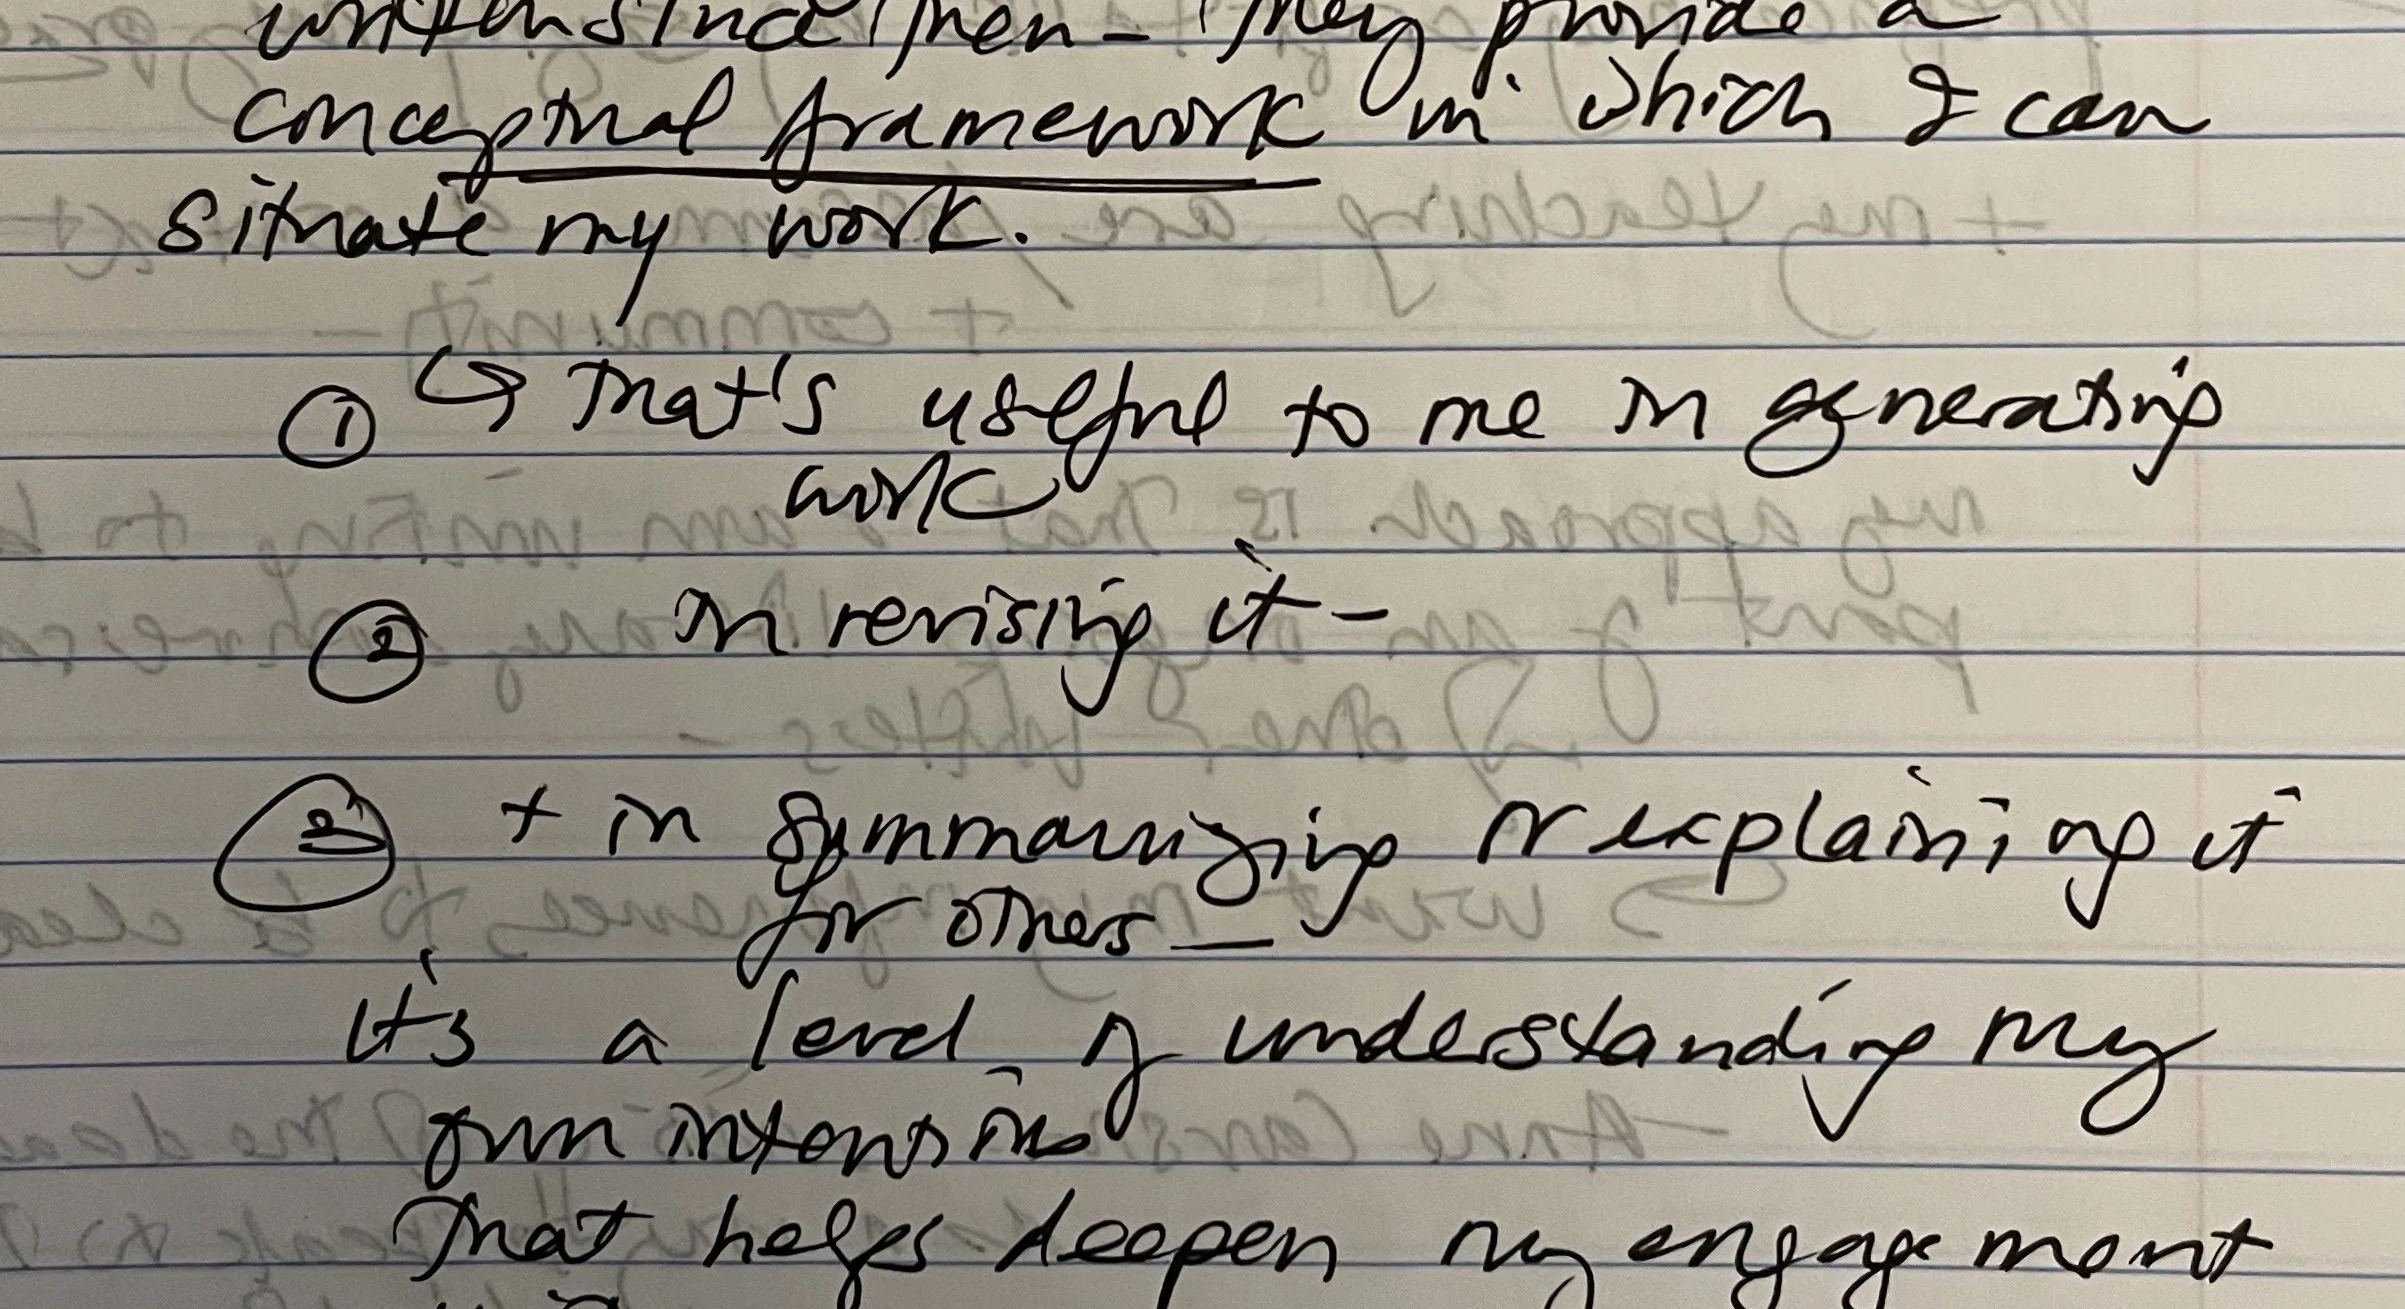 written since then - They provide a
conceptual framework in which I can
situate my work.
① ↪ that's useful to me in generating
work
② in revising it -
③ + in summarizing or explaining it
for others —
it's a level of understanding my
own intentions
that helps deepen my engagement